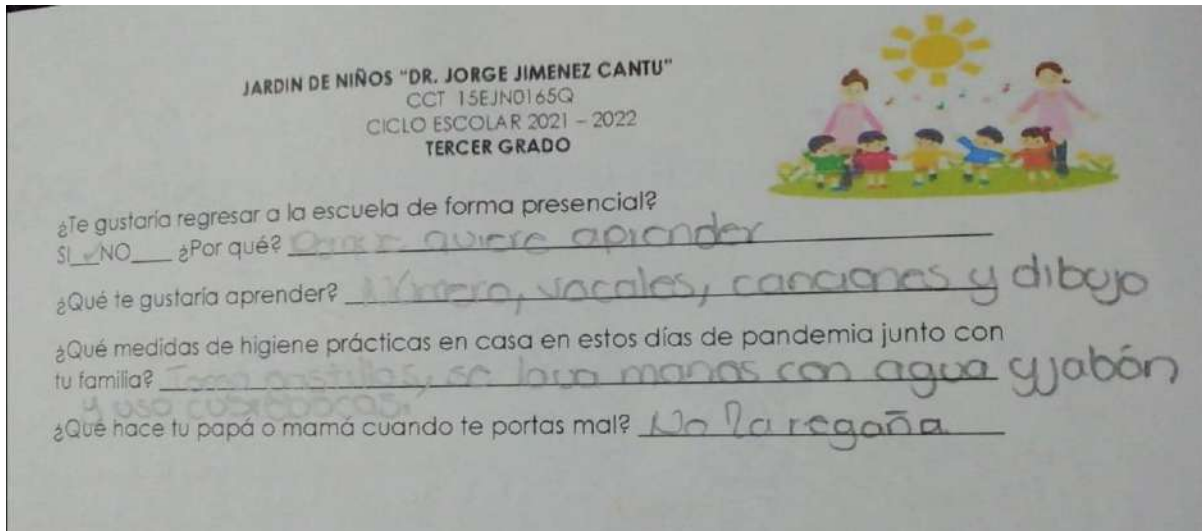 JARDIN DE NIÑOS "DR. JORGE JIMENEZ CANTU"
CCT 15EJN0165Q
CICLO ESCOLAR 2021 – 2022
TERCER GRADO
¿Te gustaría regresar a la escuela de forma presencial?
SI ✓ NO____ ¿Por qué? quiere aprender
¿Qué te gustaría aprender? Número, vocales, canciones y dibujo
¿Qué medidas de higiene prácticas en casa en estos días de pandemia junto con
tu familia? Toma pastillas, se lava manos con agua y jabón
y uso cubrebocas.
¿Qué hace tu papá o mamá cuando te portas mal? No la regaña